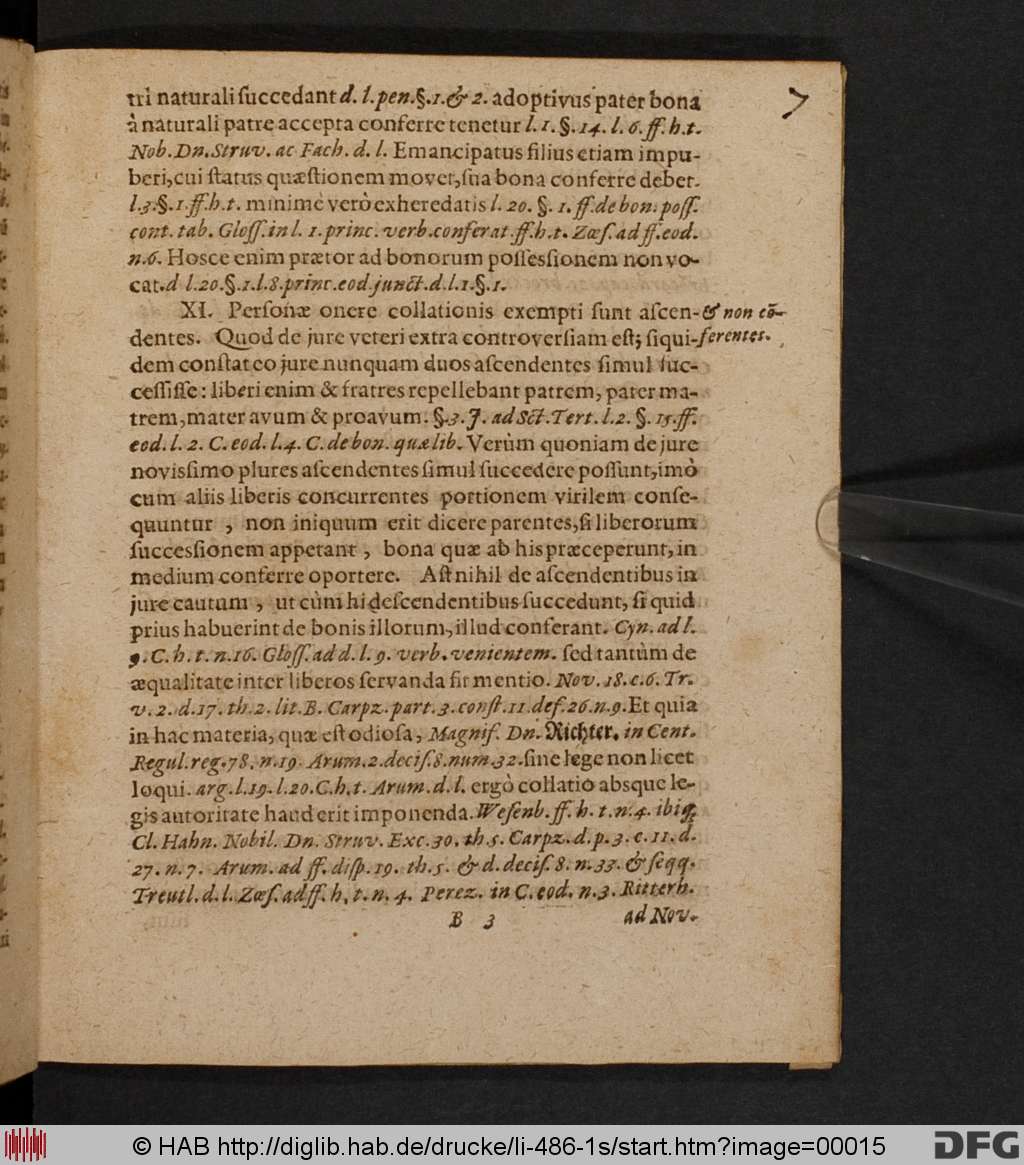 7
tri naturali ſuccedant d. l. pen. §. 1. & 2. adoptivus pater bona
à naturali patre accepta conferre tenetur l. 1. §. 14. l. 6. ff. h. t.
Nob. Dn. Struv. ac Fach. d. l. Emancipatus filius etiam impu-
beri, cui ſtatus quæſtionem movet, ſua bona conferre debet.
l. 3. §. 1. ff. h. t. minimè verò exheredatis l. 20. §. 1. ff. de bon. poſſ.
cont. tab. Gloſſ. in l. 1. princ. verb. conferat. ff. h. t. Zœſ. ad ff. eod.
n. 6. Hosce enim prætor ad bonorum poſſeſſionem non vo-
cat. d l. 20. §. 1. l. 8. princ. eod. junct. d. l. 1. §. 1.
XI. Perſonæ onere collationis exempti ſunt aſcen-
& non cō-
dentes. Quod de jure veteri extra controverſiam eſt; ſiqui-
ferentes.
dem conſtat eo jure nunquam duos aſcendentes ſimul ſuc-
ceſſiſſe: liberi enim & fratres repellebant patrem, pater ma-
trem, mater avum & proavum. §. 3. J. ad Sct. Tert. l. 2. §. 15. ff.
eod. l. 2. C. eod. l. 4. C. de bon. quæ lib. Verùm quoniam de jure
noviſſimo plures aſcendentes ſimul ſuccedere poſſunt, imò
cum aliis liberis concurrentes portionem virilem conſe-
quuntur, non iniquum erit dicere parentes, ſi liberorum
ſucceſſionem appetant, bona quæ ab his præceperunt, in
medium conferre oportere. Aſt nihil de aſcendentibus in
jure cautum, ut cùm hi deſcendentibus ſuccedunt, ſi quid
prius habuerint de bonis illorum, illud conferant. Cyn. ad l.
9. C. h. t. n. 16. Gloſſ. ad d. l. 9. verb. venientem. ſed tantùm de
æqualitate inter liberos ſervanda fit mentio. Nov. 18. c. 6. Tr.
v. 2. d. 17. th. 2. lit. B. Carpz. part. 3. conſt. 11. def. 26. n. 9. Et quia
in hac materia, quæ eſt odioſa, Magnif. Dn. Richter. in Cent.
Regul. reg. 78. n. 19 Arum. 2. deciſ. 8. num. 32. ſine lege non licet
loqui. arg. l. 19. l. 20. C. h. t. Arum. d. l. ergò collatio absque le-
gis autoritate haud erit imponenda. Weſenb. ff. h. t. n. 4. ibiq;
Cl. Hahn. Nobil. Dn. Struv. Exc. 30. th. 5. Carpz. d. p. 3. c. 11. d.
27. n. 7. Arum. ad ff. diſp. 19. th. 5. & d. deciſ. 8. n. 33. & ſeqq.
Treutl. d. l. Zœſ. ad ff. h. t. n. 4. Perez. in C. eod. n. 3. Ritterh.
B 3
ad Nov.
© HAB http://diglib.hab.de/drucke/li-486-1s/start.htm?image=00015
DFG